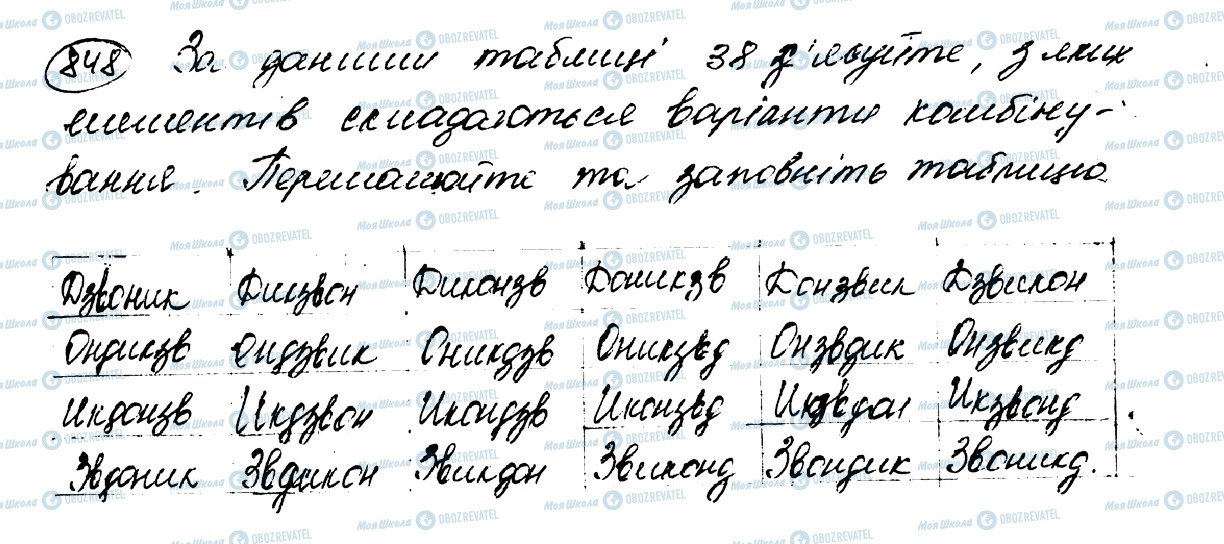 848 За даними таблиці 38 з'ясуйте, з яких
елементів складаються варіанти комбіну-
вання. Перемалюйте та заповніть таблицю.
Дзвоник Дикзвон Диконзв Доникзв Донзвик Дзвикон
Ондикзв Ондзвик Оникдзв Оникзвд Онзвдик Онзвикд
Икдонзв Икдзвон Икондзв Иконзвд Икзвдон Икзвонд
Звдоник Звдикон Звикдон Звиконд Звондик Звоникд.